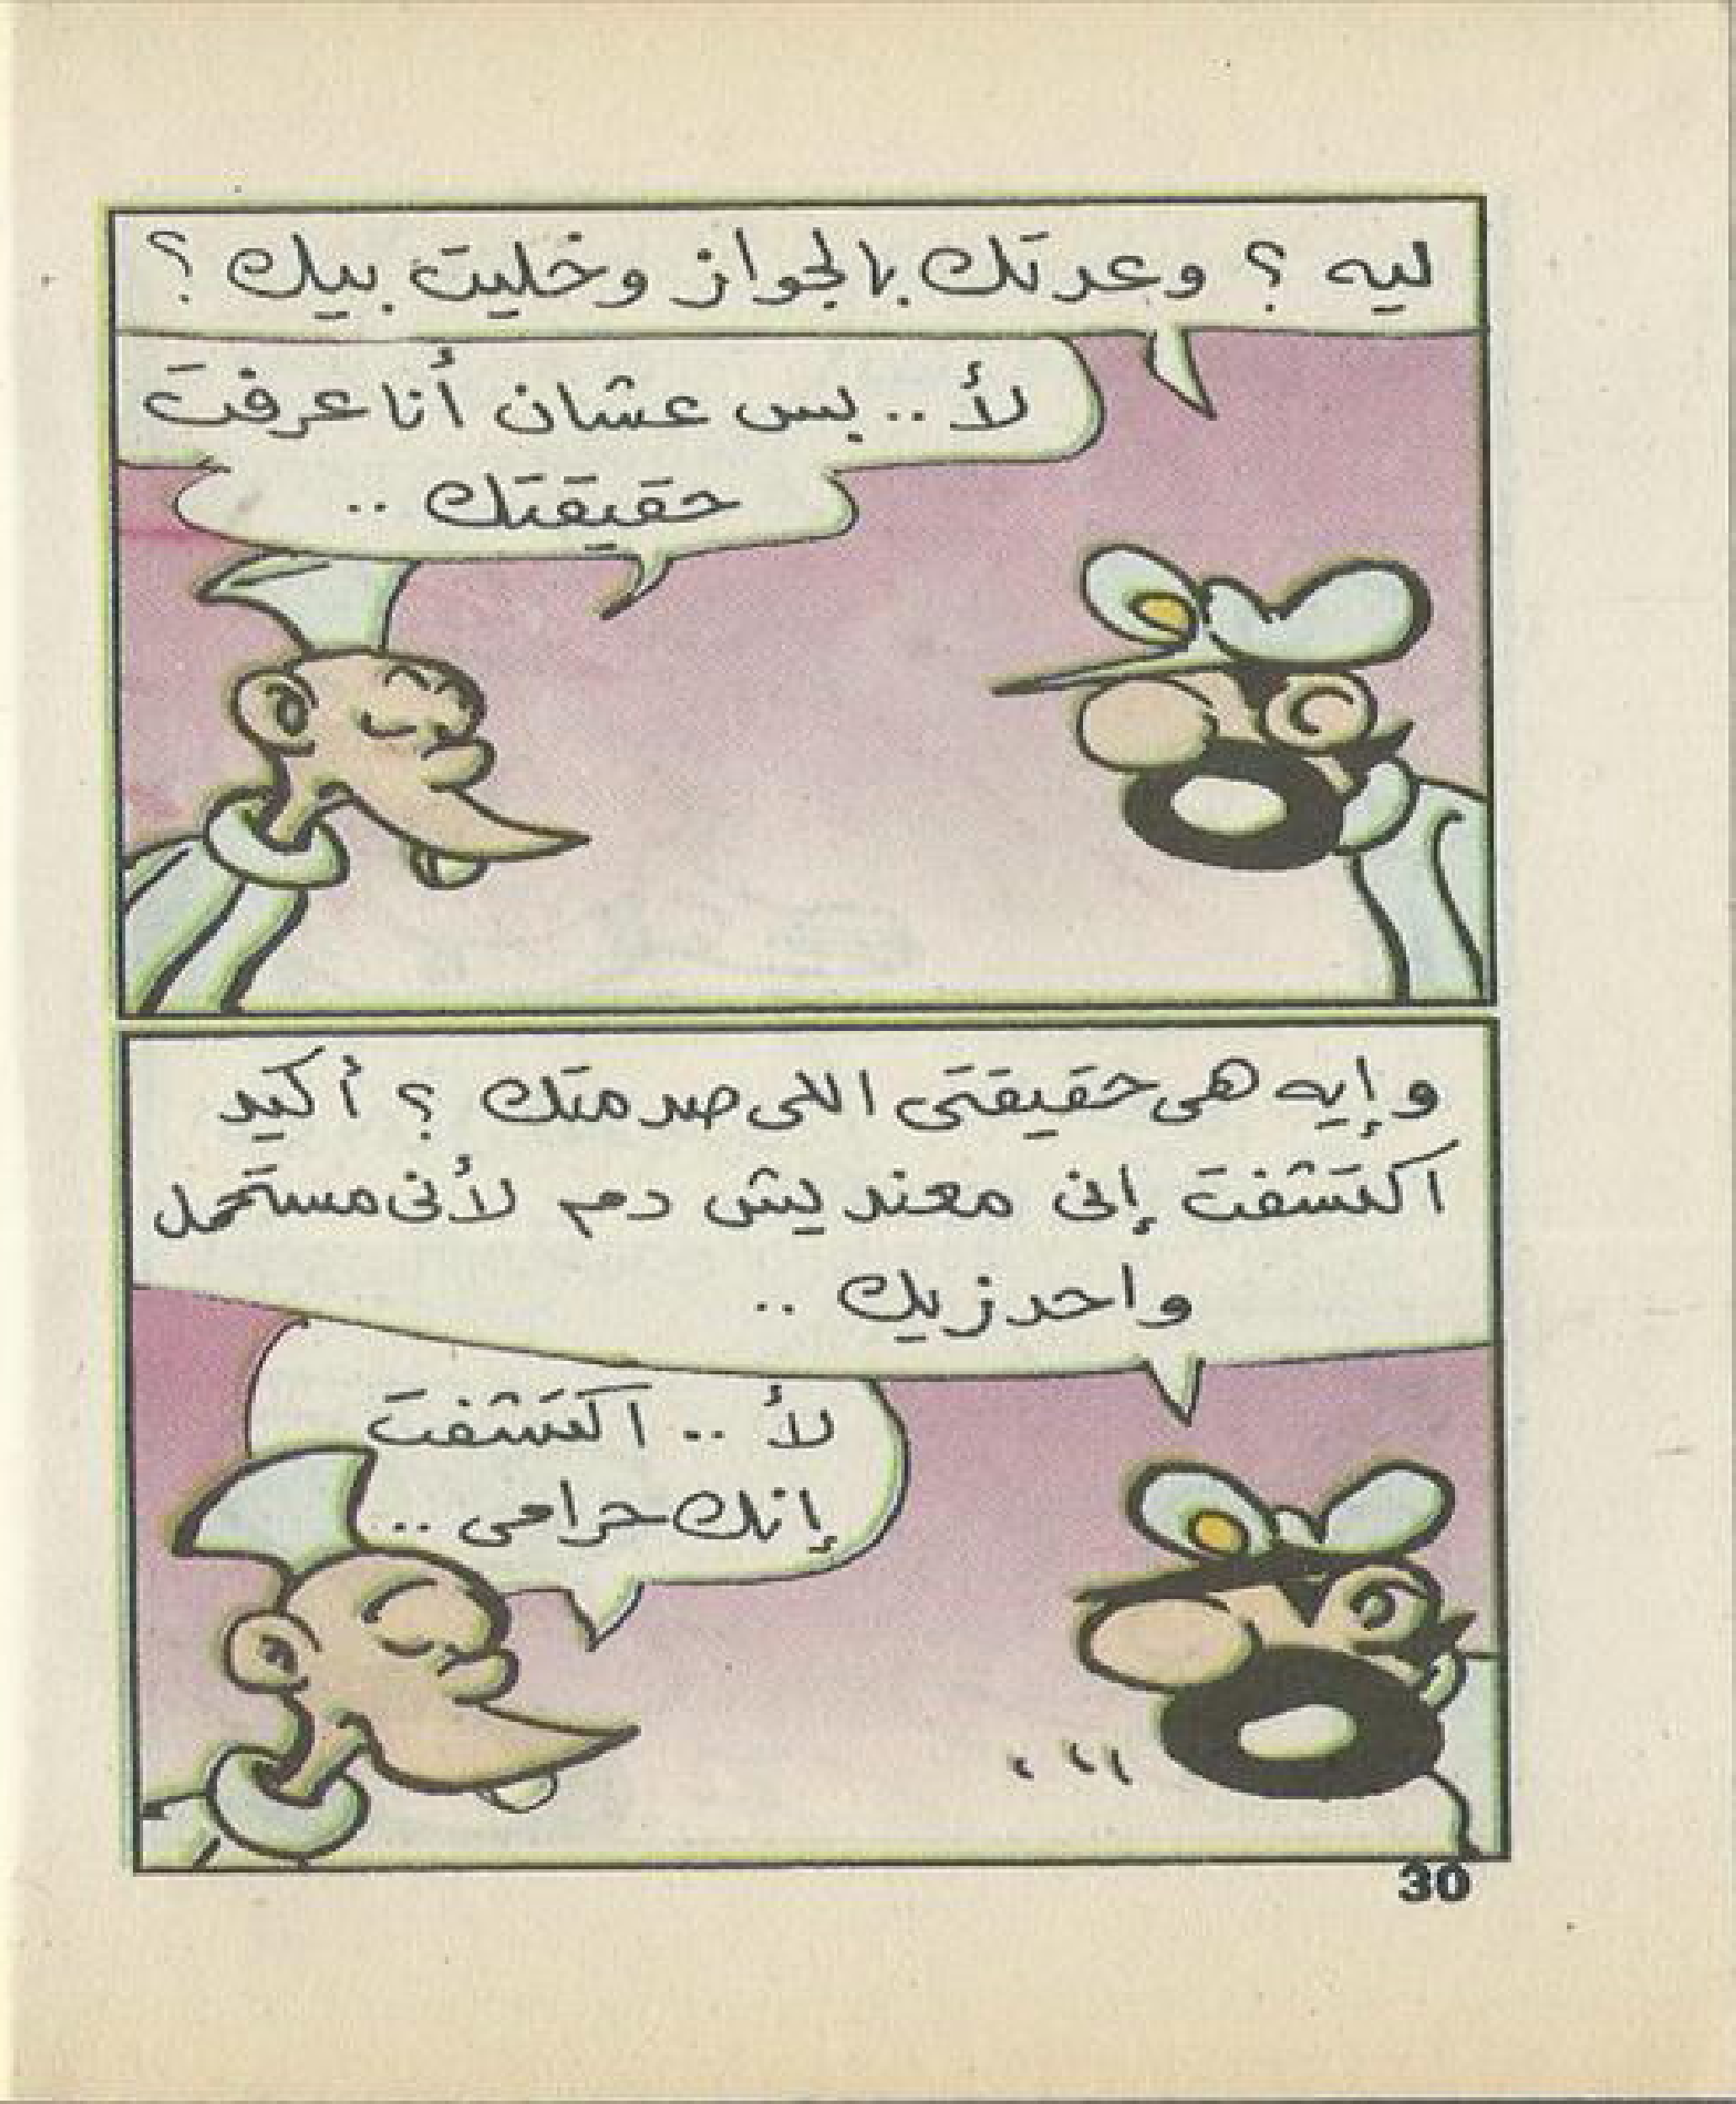 ليه ؟ وعدتك بالجواز وخليت بيك ؟
لأ .. بس عشان أنا عرفت
حقيقتك ..
وإيه هى حقيقتى اللى صدمتك ؟ أكيد
اكتشفت إنى معنديش دم لأنى مستحمل
واحد زيك ..
لأ .. اكتشفت
إنك حرامى ..
30